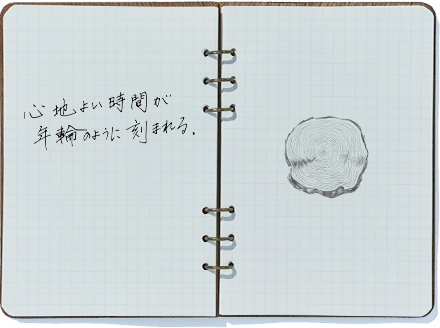 心地よい時間が
年輪のように刻まれる.